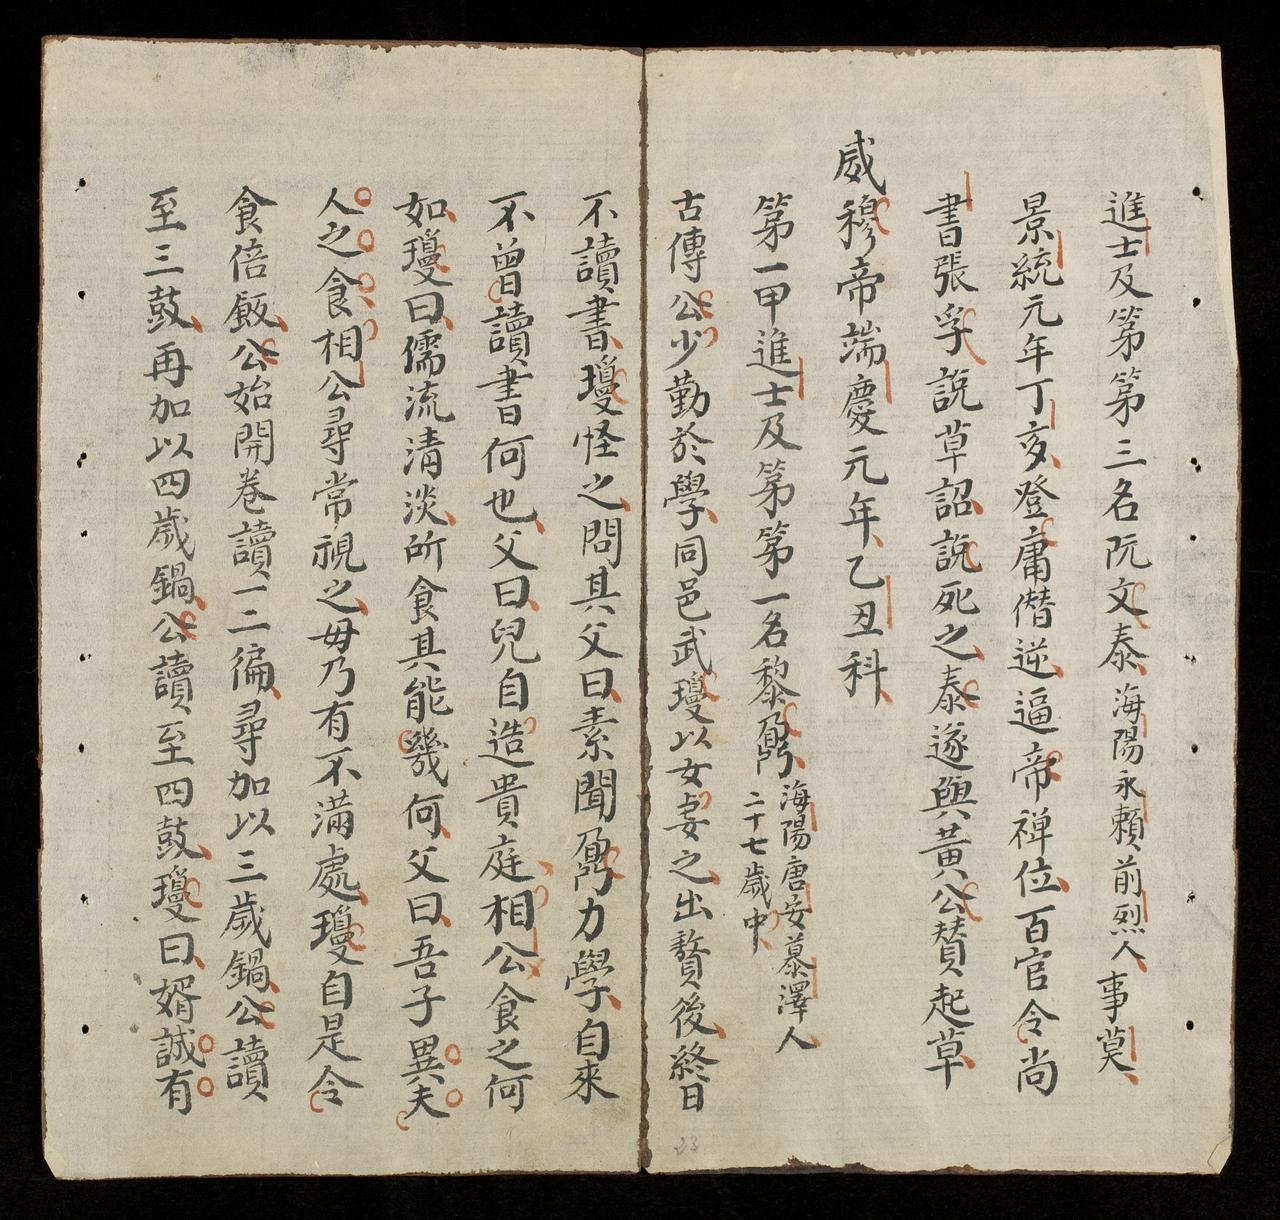 進士及第第三名阮文泰海陽永賴前烈人事莫
景統元年丁亥登庸僭逆逼帝禪位百官令尚
書張孚說草詔說死之泰遂與黃公贊起草
威穆帝端慶元年乙丑科
第一甲進士及第第一名黎鼐海陽唐安慕澤人
二十七歲中
古傳公少勤於學同邑武瓊以女妻之出贅後終日
不讀書瓊怪之問其父曰素聞鼐力學自來
不曾讀書何也父曰兒自造貴庭相公食之何
如瓊曰儒流清淡所食其能幾何父曰吾子異夫
人之食相公尋常視之毋乃有不滿處瓊自是令
食倍飯公始開卷讀一二徧尋加以三歲鍋公讀
至三鼓再加以四歲鍋公讀至四鼓瓊曰婿誠有
23